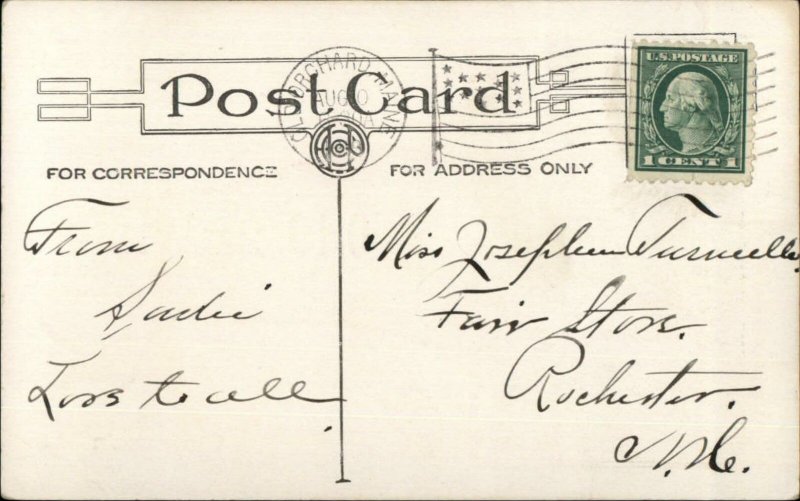 OLD ORCHARD MAINE
AUG
Post Card
U.S. POSTAGE
1 CENT 1
FOR CORRESPONDENCE
FOR ADDRESS ONLY
From
Sadie
Love to all
Miss Josephine
Fair Store.
Rochester.
N.H.